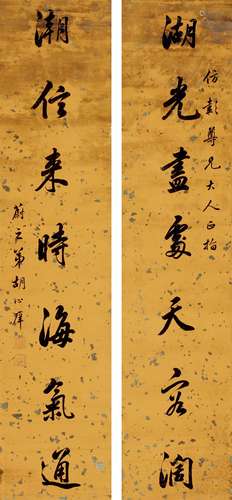 仿彭尊兄大人正指
湖光盡處天容闊
潮信来時海氣通
蔚之弟胡心